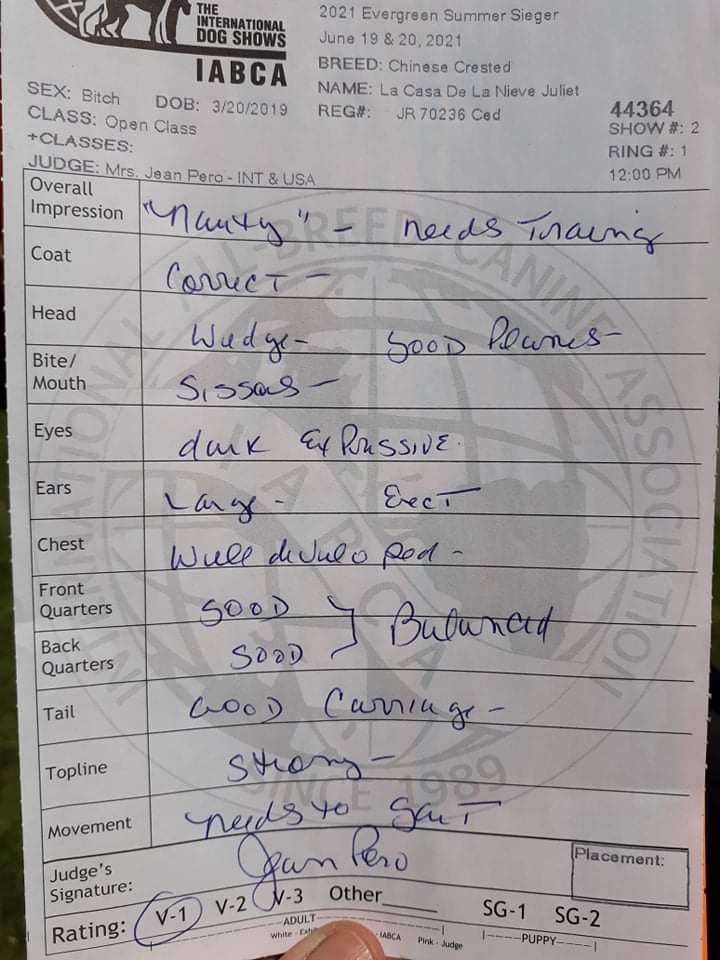 THE
INTERNATIONAL
DOG SHOWS
IABCA
2021 Evergreen Summer Sieger
June 19 & 20, 2021
BREED: Chinese Crested
NAME: La Casa De La Nieve Juliet
REG#: JR 70236 Ced
44364
SHOW #: 2
RING #: 1
12:00 PM
SEX: Bitch DOB: 3/20/2019
CLASS: Open Class
+CLASSES:
JUDGE: Mrs. Jean Pero - INT & USA
Overall
Impression
"Nauty" - needs Training
Coat
Correct -
Head
Wedge - Good Planes -
Bite/
Mouth
Sissors -
Eyes
dark Expressive.
Ears
Large - Erect
Chest
Well developed -
Front
Quarters
Good
Balanced
Back
Quarters
Good
Tail
Good Carriage -
Topline
Strong -
Movement
needs to gait
Judge's
Signature:
Jean Pero
Placement:
Rating: V-1 V-2 V-3 Other____ SG-1 SG-2
ADULT
PUPPY
White - IABCA Pink - Judge
INTERNATIONAL ALL-BREED CANINE ASSOCIATION
IABCA
SINCE 1989